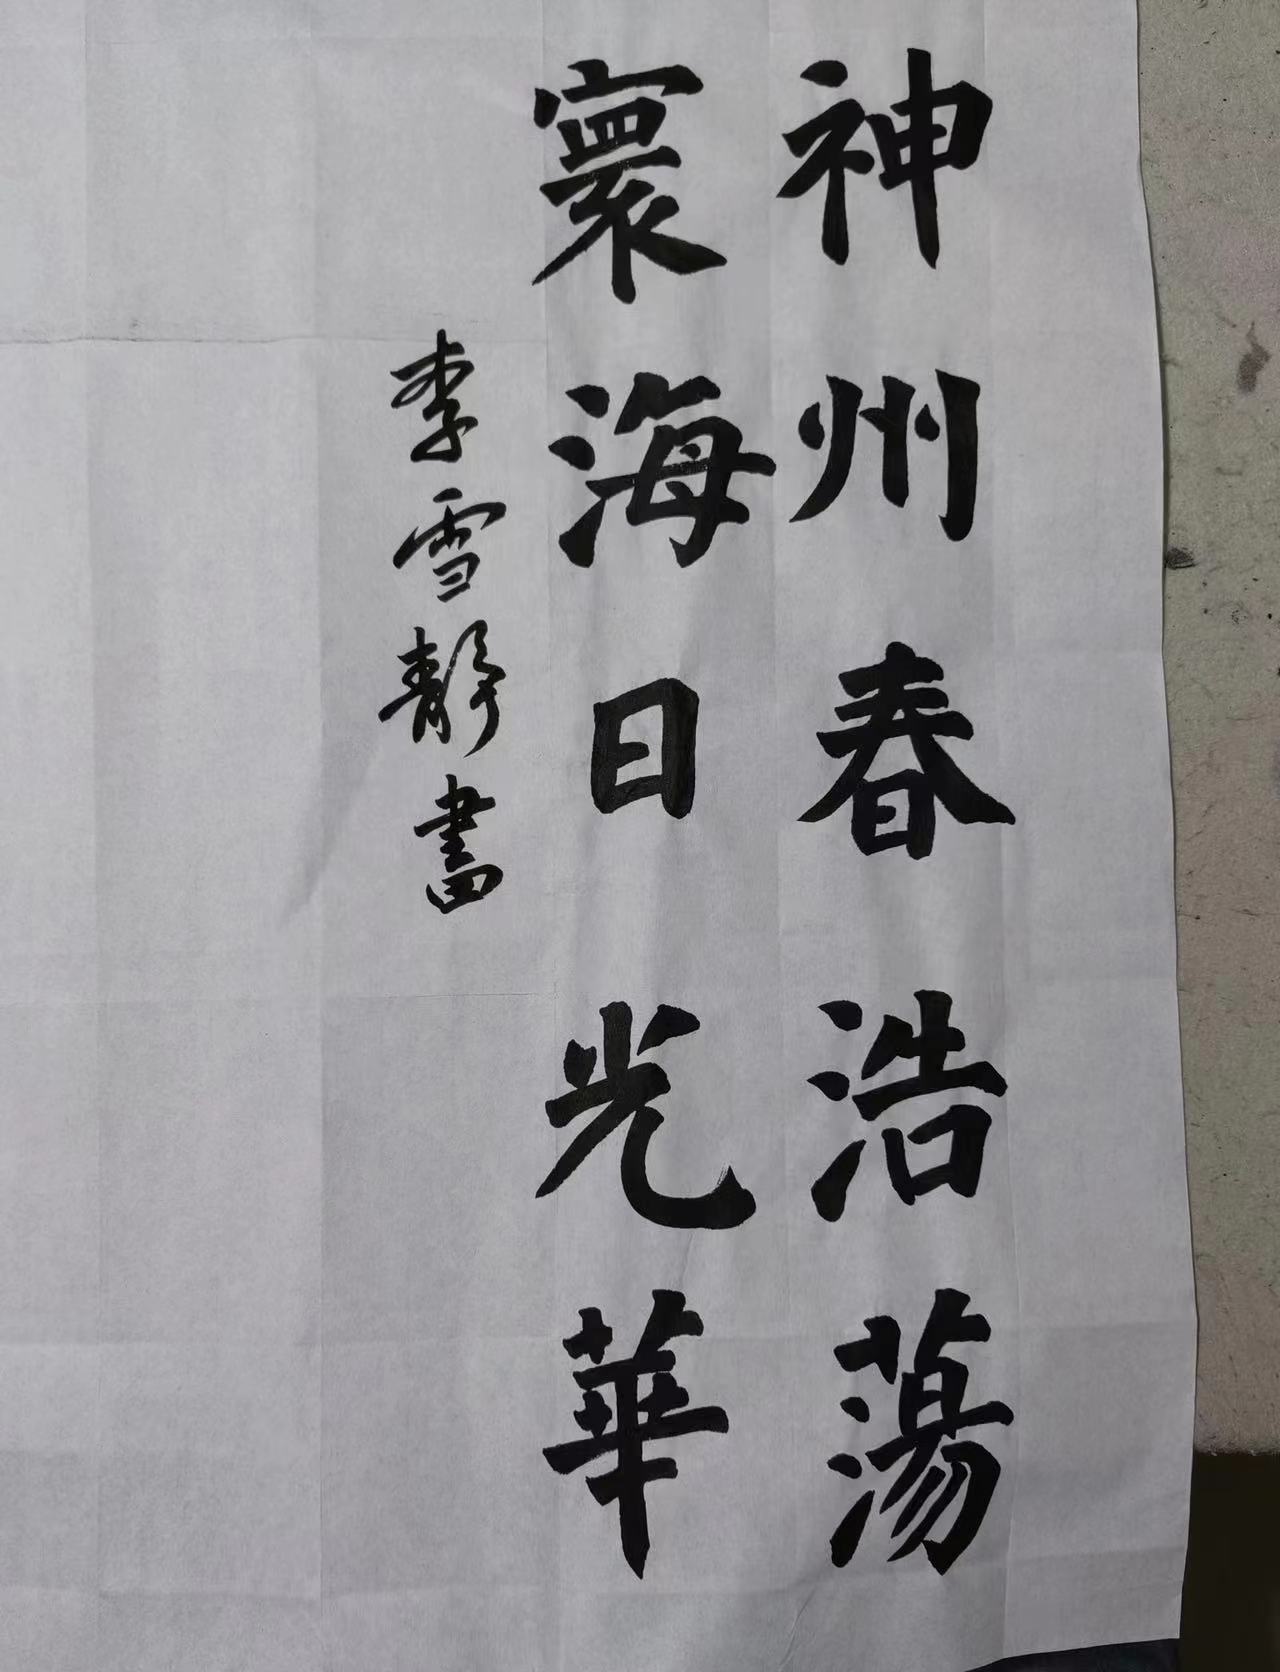 神州春浩蕩
寰海日光華
李雪靜書